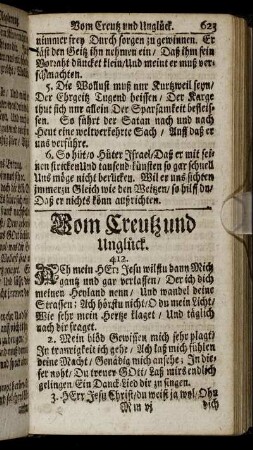 Vom Creutz und Unglück. 623
nimmer frey Durch sorgen zu gewinnen. Er
läst den Geitz ihn nehmen ein / Daß ihm sein
Vorraht düncket klein / Und meint er muß ver-
schmachten.
5. Die Wollust muß nur Kurtzweil seyn /
Der Ehrgeitz Tugend heissen / Der Karge
thut sich nur allein Der Sparsamkeit befleis-
sen. So führt der Satan nach und nach
Heut eine weltverkehrte Sach / Auff daß er
uns verführe.
6. So hüt / o Hüter Israel / Daß er mit sei-
nen stricken Und tausend künsten so gar schnell
Uns möge nicht berücken. Wil er uns sichten
immerzu Gleich wie den Weitzen / so hilff du /
Daß er nichts könn außrichten.
Vom Creutz und
Unglück.
412.
ACh mein HErr Jesu wilstu dann Mich
gantz und gar verlassen / Der ich dich
meinen Heyland nenn / Und wandel deine
Strassen: Ach hörstu nicht / O du mein Licht /
Wie sehr mein Hertze klaget / Und täglich
nach dir fraget.
2. Mein blöd Gewissen mich sehr plagt /
In traurigkeit ich gehe / Ach laß mich fühlen
deine Macht / Genädig mich ansehe; In die-
ser noht / Du treuer GOtt / Laß mirs endlich
gelingen / Ein Danck-Lied dir zu singen.
3. HErr Jesu Christ / du weist ja wol / Ohn
dich